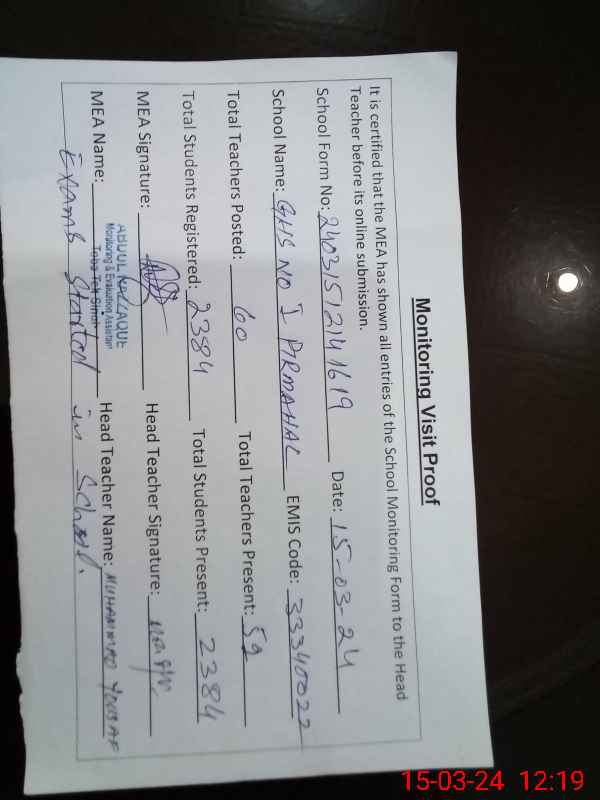 Monitoring Visit Proof
It is certified that the MEA has shown all entries of the School Monitoring Form to the Head
Teacher before its online submission.
School Form No: 24031512141619 Date: 15-03-24
School Name: GHS NO I PIRMAHAL EMIS Code: 33340022
Total Teachers Posted: 60 Total Teachers Present: 59
Total Students Registered: 2384 Total Students Present: 2384
MEA Signature: Head Teacher Signature:
ABDUL RAZZAQUE
Monitoring & Evaluation Assistant
Toba Tek Singh
MEA Name: Head Teacher Name: MUHAMMAD YOUSAF
Exams Started in School.
15-03-24 12:19